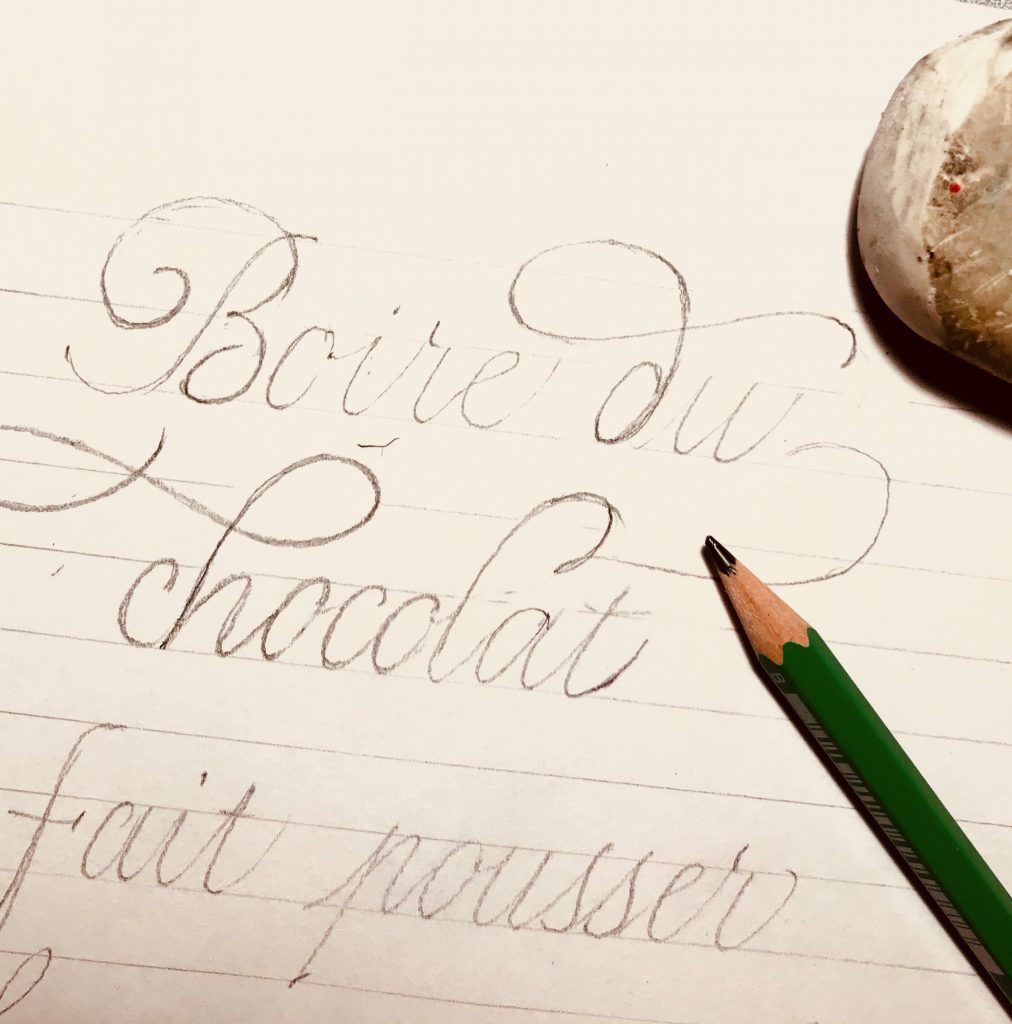 Boire du
chocolat
fait pousser
B